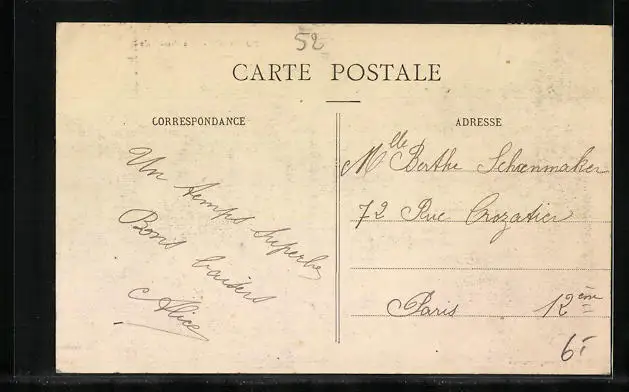 52
CARTE POSTALE
CORRESPONDANCE
Un temps superbe
Bons baisers
Alice
ADRESSE
Mlle Berthe Schoenmaker
72 Rue Crozatier
Paris 12ème
6F